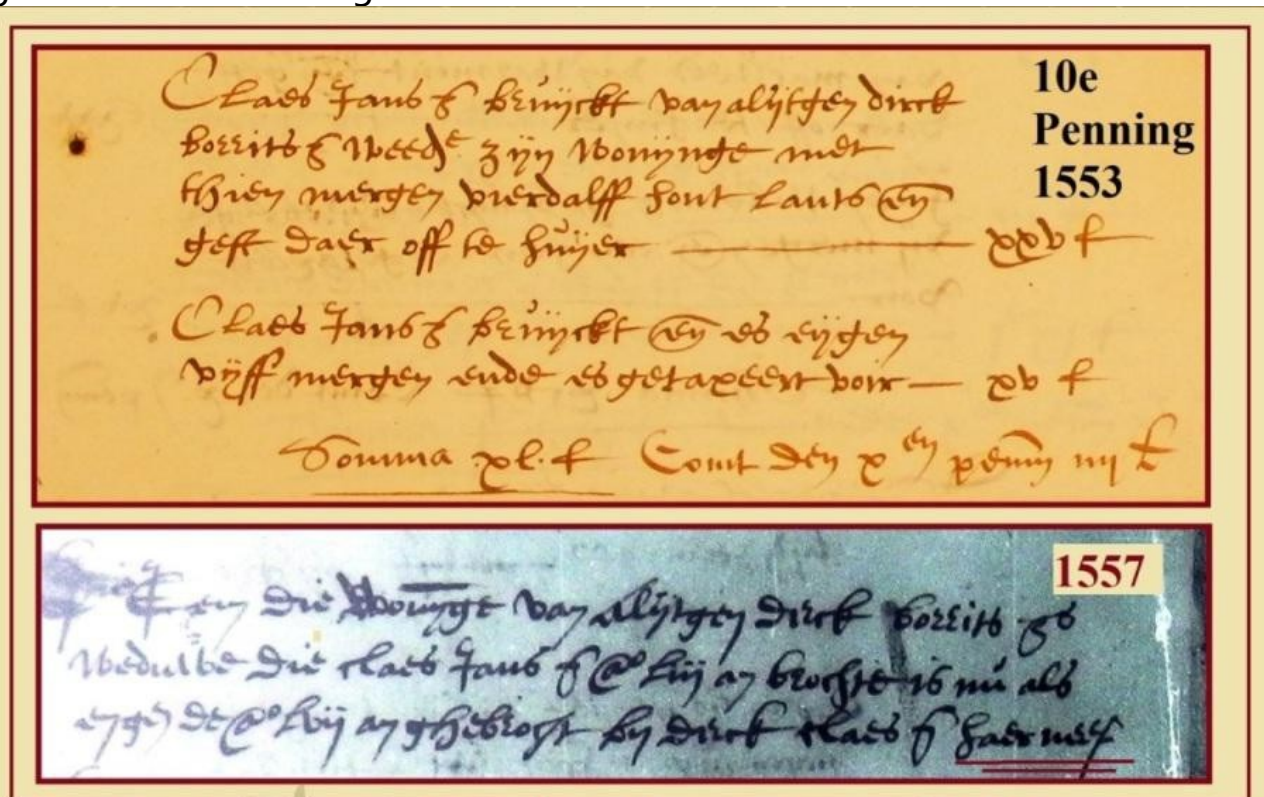 Claes Jans z bruyckt van alijtgen dirck
borrits z weedᵉ zijn wonynge met
thien mergen vierdalff hont lants eñ
geft daer off te huijer xxv £
Claes Jans z bruyckt eñ es eijgen
vijff mergen ende es getaxeert voir xv £
Somma xl. £ Comt den xᵉⁿ penn iiij £
10e
Penning
1553
1557
die wonynge van alijtgen dirck borrits zs
weduwe die claes Jans z aº liij an brochte is nu als
eygen de aº lvij an ghebrocht by dirck claes z haerneef